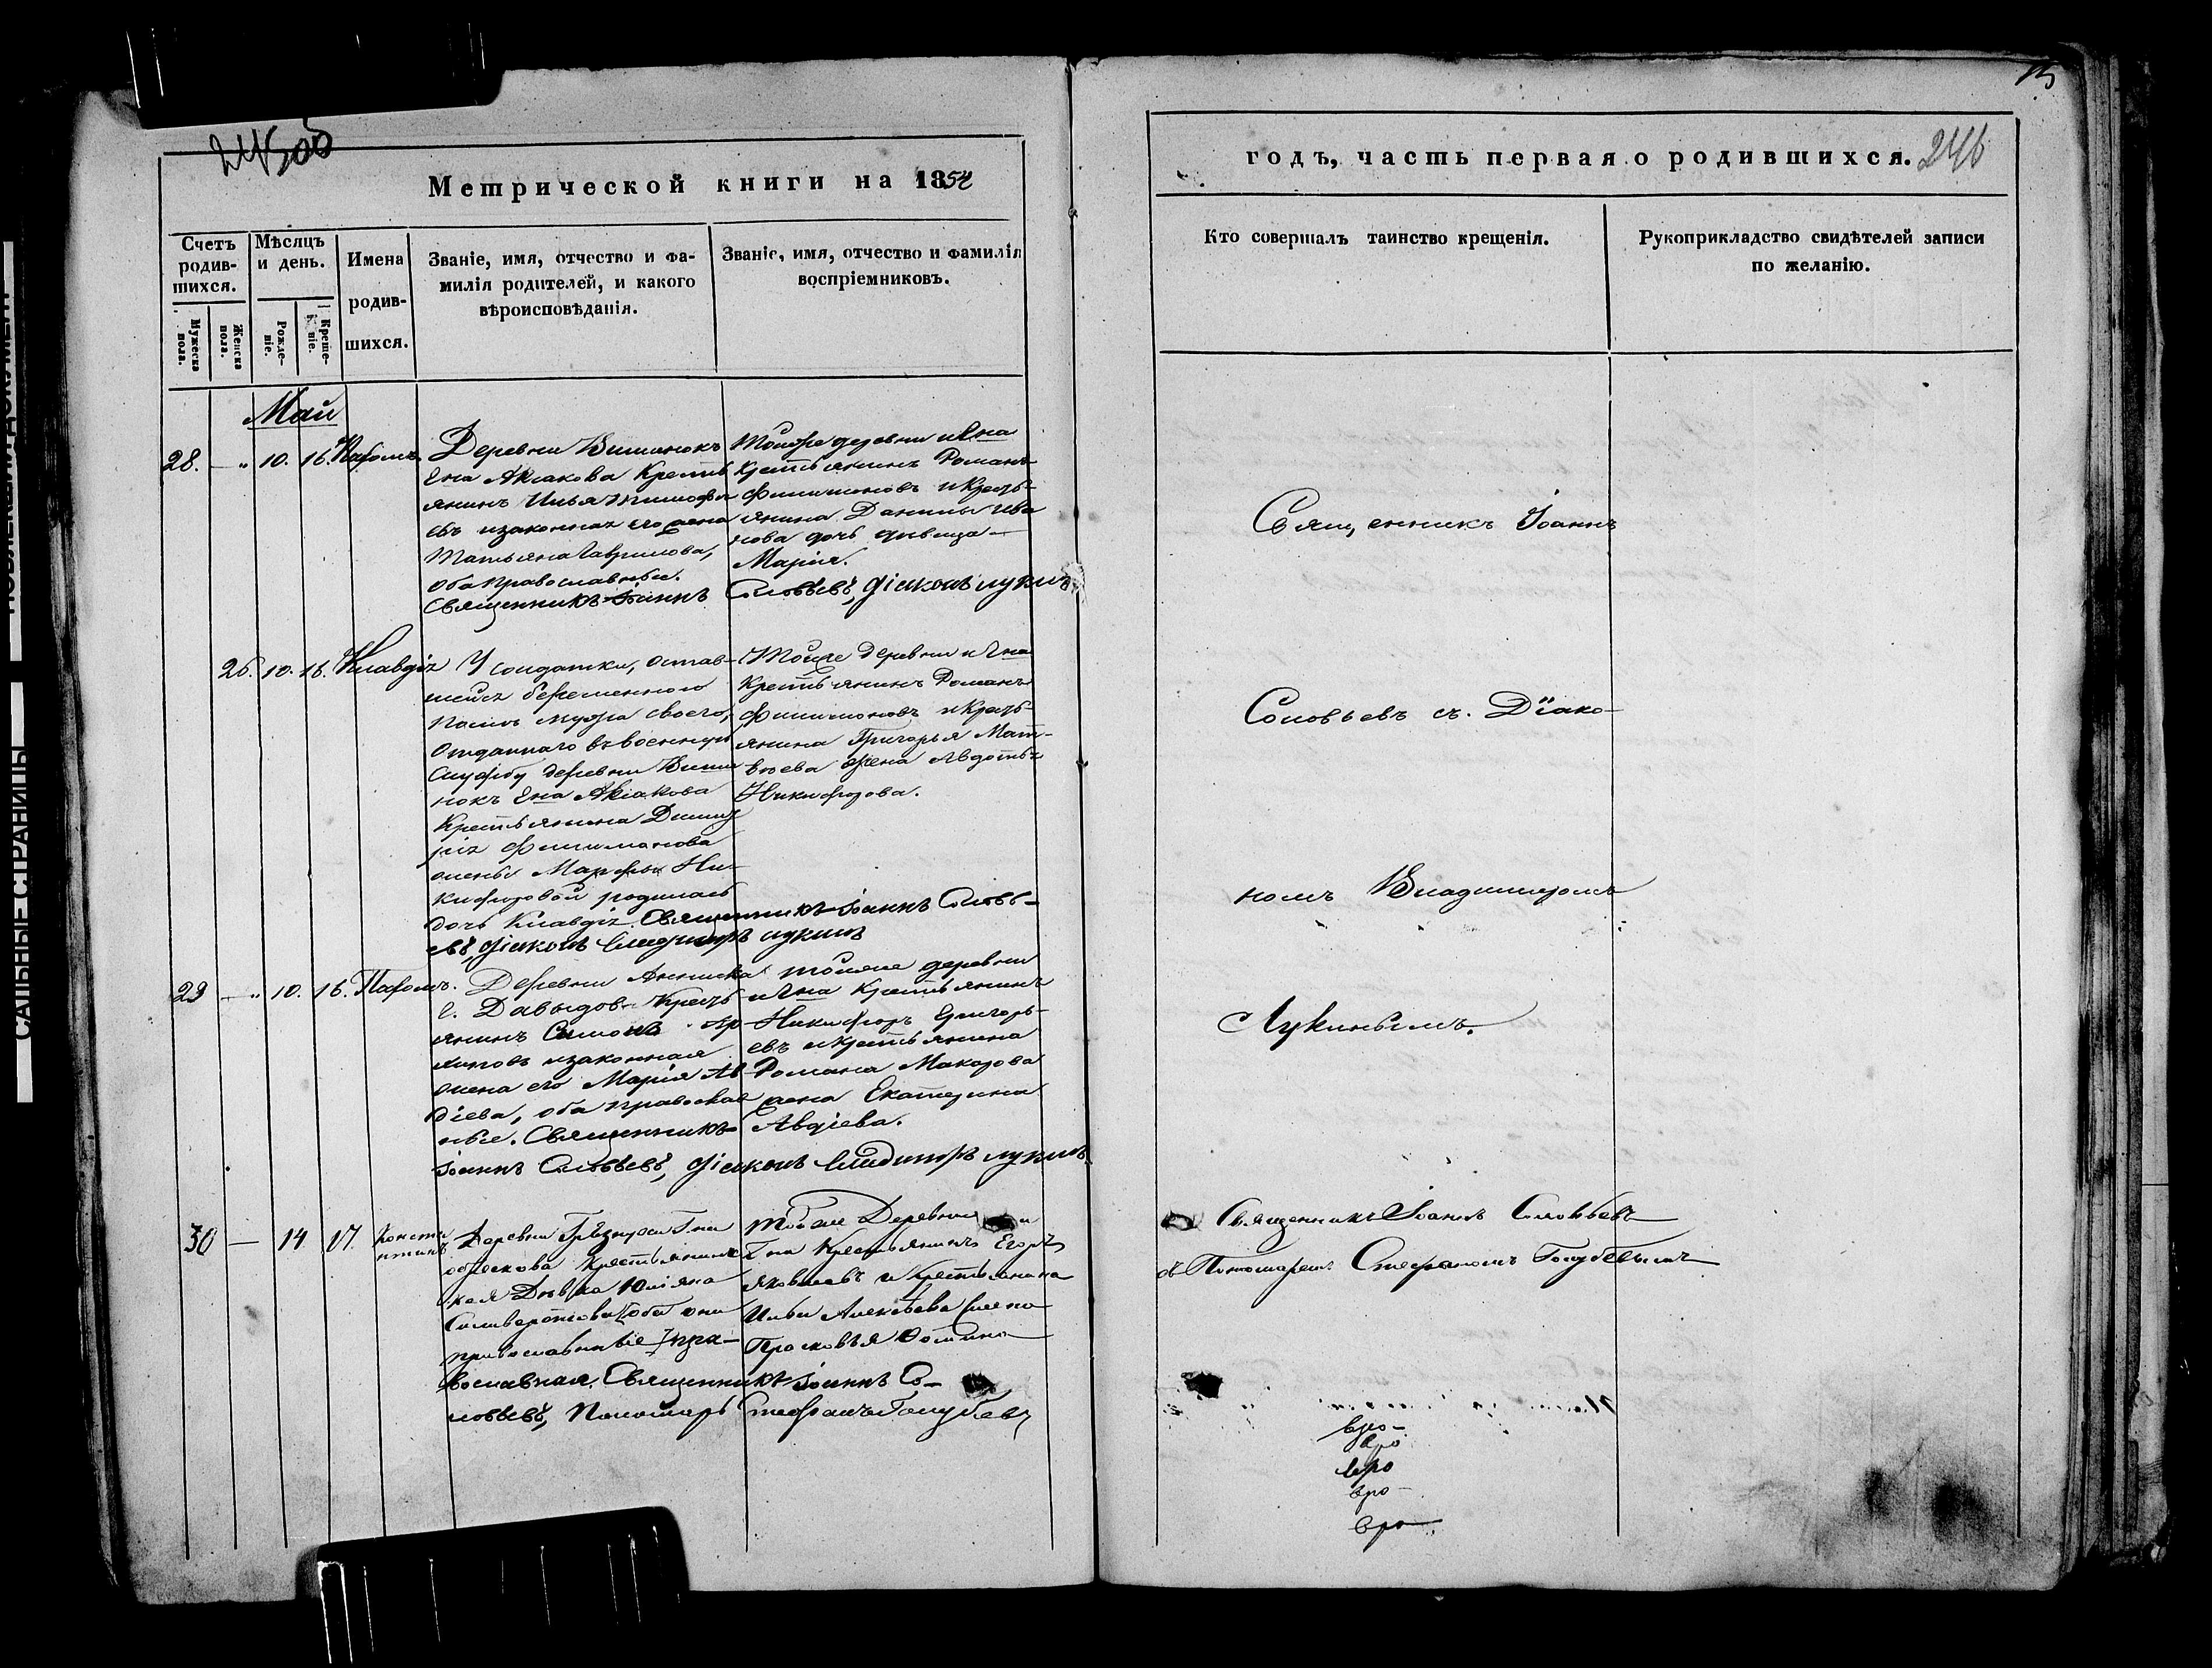 245об
Метрической книги на 1854
Счетъ родив-шихся.
Мѣсяцъ и день.
Имена родив-шихся.
Званіе, имя, отчество и фа-
милія родителей, и какого
вѣроисповѣданія.
Званіе, имя, отчество и фамилія
воспріемниковъ.
Мужеска пола.
Женска пола.
Рожде-ніе.
Креще-ніе.
Май
28. — „ 10. 16. Пахомъ
Деревни
Ена Аксакова Кресть
янинъ Илья Тимофе
евъ изаконная его жена
Татьяна Гаврилова,
оба православные.
Священникъ Іоаннъ Соловьевъ, діаконъ Лукинъ
Тойже деревни иЕна
Крестьянинъ Романъ
Филимоновъ иКресть-
янина Данилы Ива
нова дочь дѣвица
Марія.
26. 10. 16. Клавдія
У солдатки, остав-
шейся беременною
послѣ мужа своего,
отданнаго въвоенную
службу деревни
Ена Аксакова
Крестьянина Димит
рія Филимонова
жены Марфы Ни-
кифоровой родилась
дочь Клавдія. Священникъ Іоаннъ Соловь-
евъ, діаконъ Владимиръ Лукинъ
Тойже деревни иЕна
Крестьянинъ Романъ
Филимоновъ иКресть-
янина Григорья Мат-
вѣева жена Авдотья
Никифорова.
29 — „ 10. 16. Пахомъ.
Деревни
Е. Давыдов Кресть
янинъ Симонъ Ар
хиповъ изаконная
жена его Марія Ав
діева, оба православ
ные. Священникъ
Іоаннъ Соловьевъ, діаконъ Владимиръ Лукинъ
тойже деревни
иЕна Крестьянинъ
Никифоръ Григорь-
евъ иКрестьянина
Романа Макарова
жена Екатерина
Авдіева.
30 — 14 17. Конста
нтинъ
Деревни Гна
обрескова Крестьянс
кая Дѣвка Юліяна
Силиверстова [оба они
православные] пра-
вославная. Священникъ Іоаннъ Со-
ловьевъ, Пономарь Стефанъ Голубевъ
той же Деревни и
Гна Крестьянинъ Егоръ
Яковлевъ и Крестьянина
Ильи Алексѣева жена
Прасковья Фомина
13
годъ, часть первая о родившихся. 246
Кто совершалъ таинство крещенія.
Рукоприкладство свидѣтелей записи
по желанію.
Священникъ Іоаннъ
Соловьевъ съ Діако-
номъ Владимиромъ
Лукинымъ.
Священникъ Іоаннъ Соловьевъ
съ Пономаремъ Стефаномъ Голубевымъ